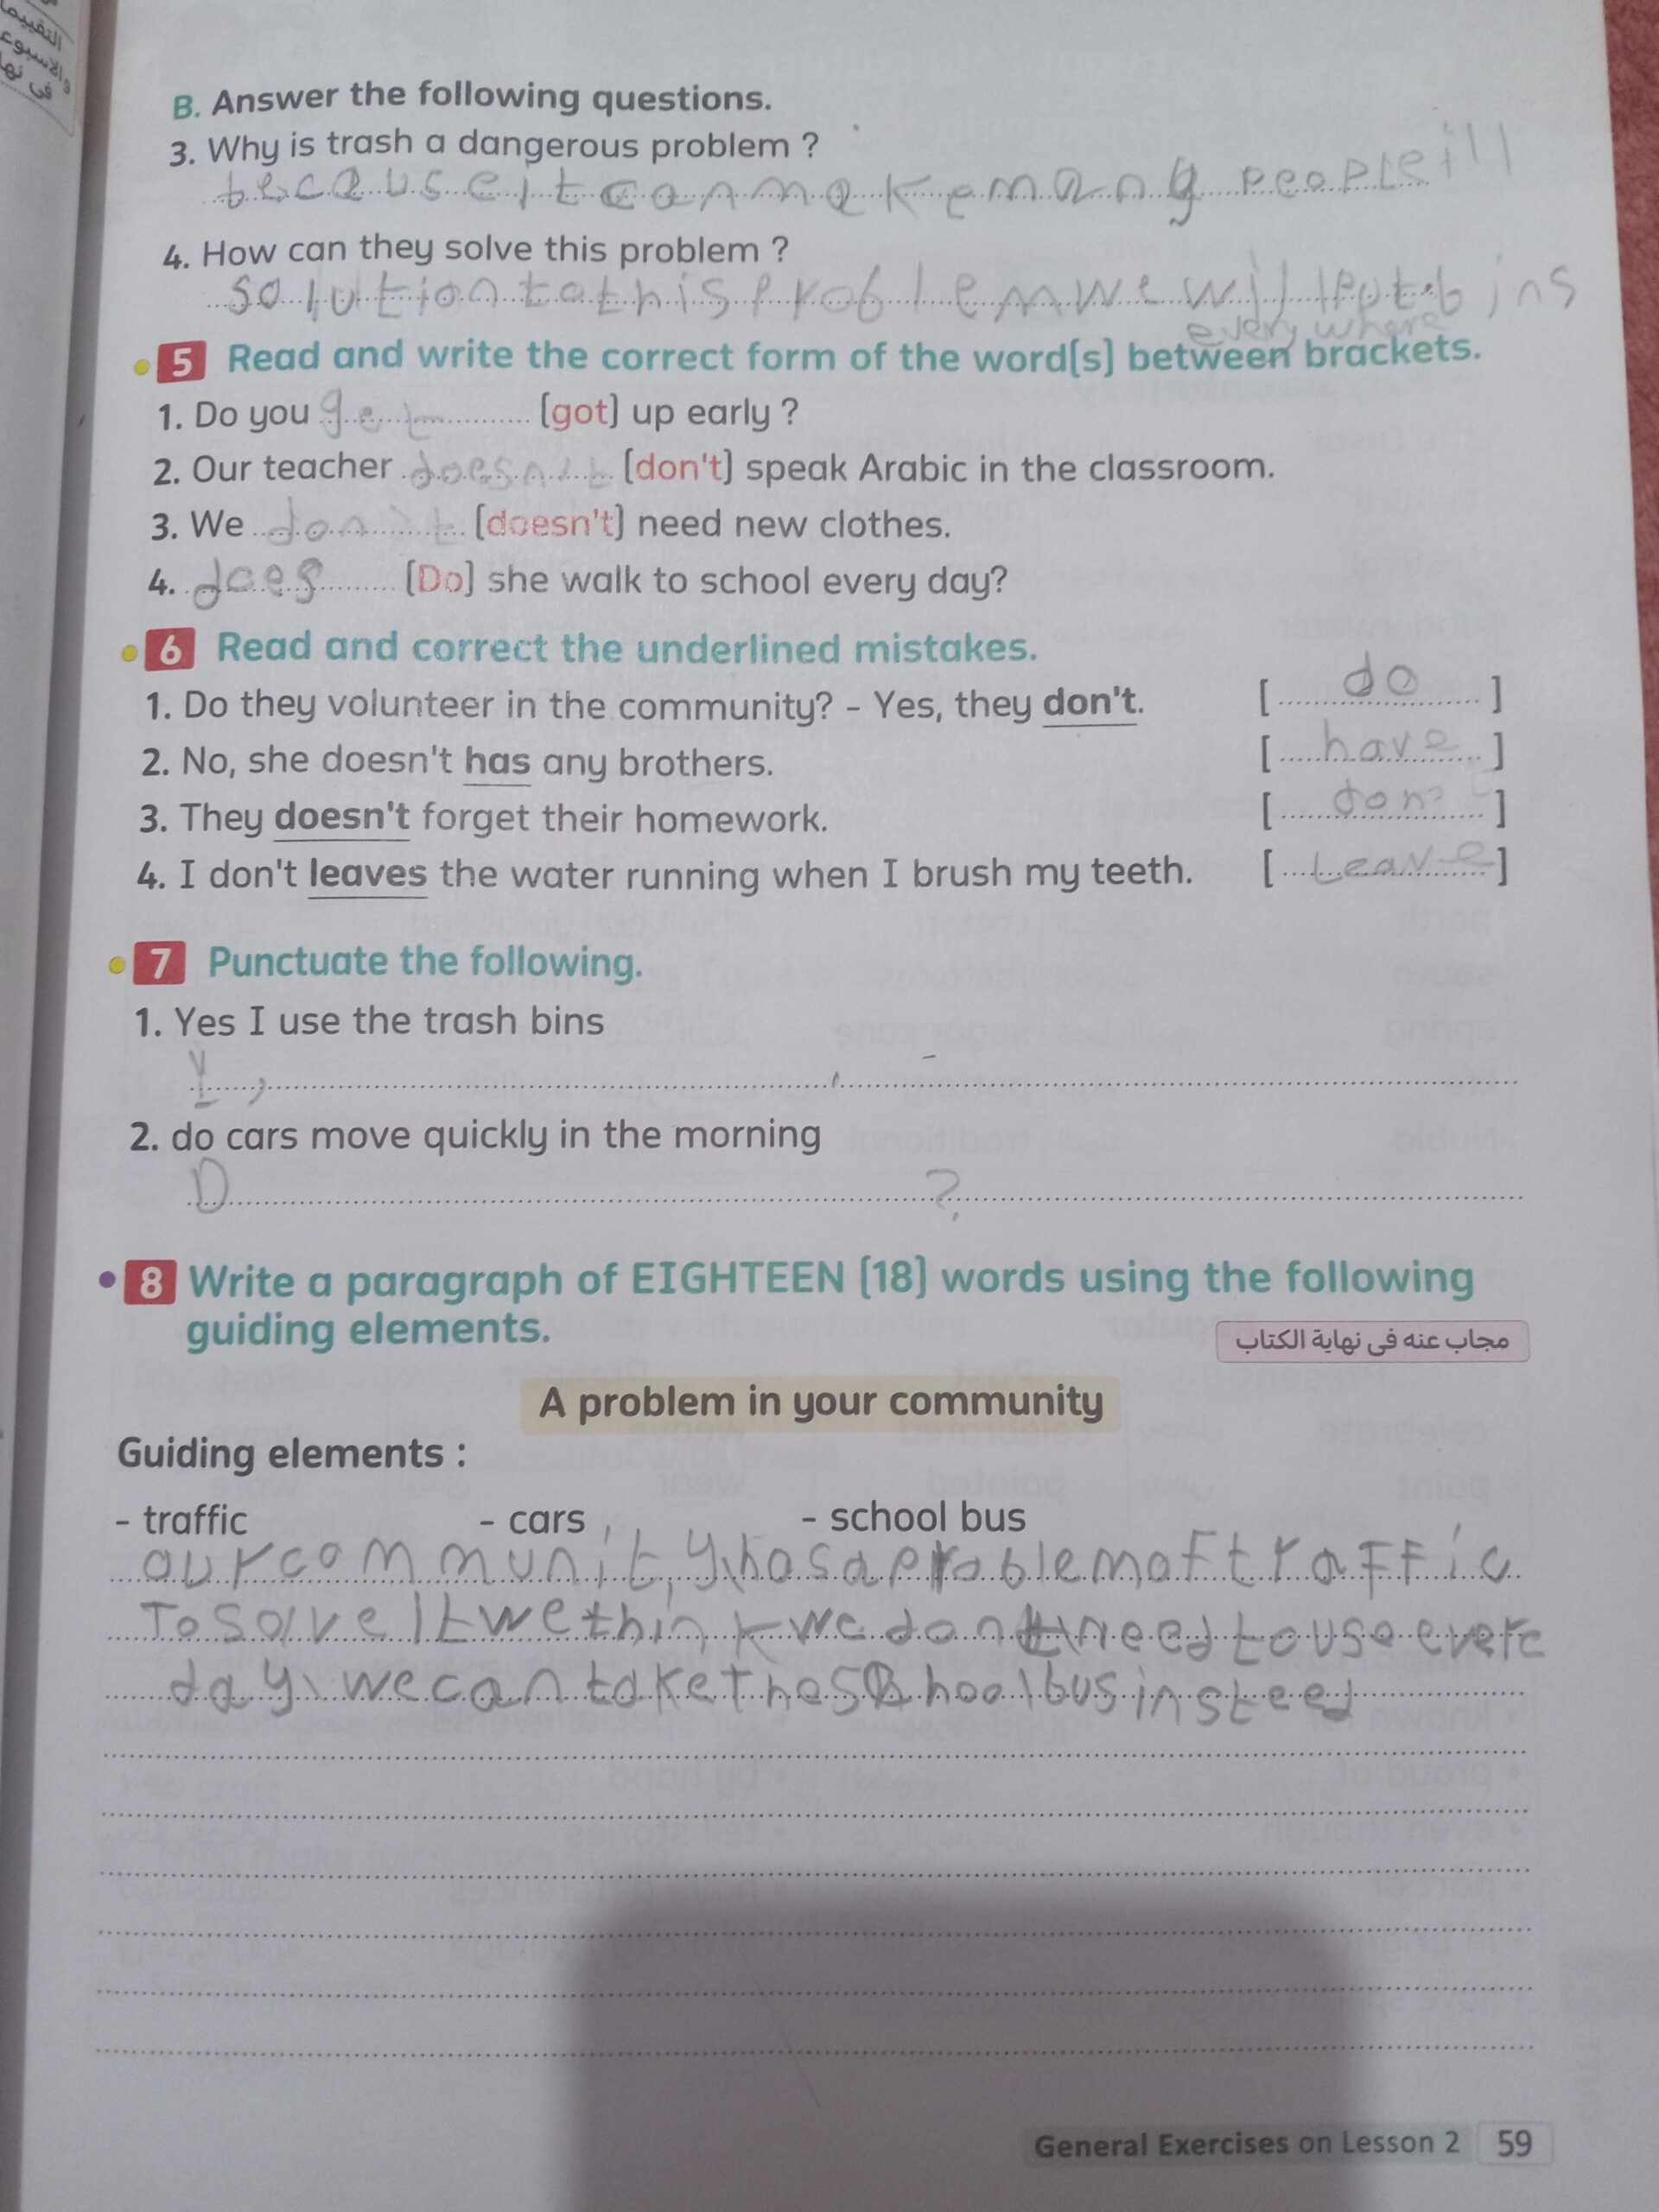 التقييما
والاسبوع
فى نها
B. Answer the following questions.
3. Why is trash a dangerous problem ?
because it can make many people ill
4. How can they solve this problem ?
solution to this problem we will put bins
every where
5 Read and write the correct form of the word(s) between brackets.
1. Do you get (got) up early ?
2. Our teacher doesn't (don't) speak Arabic in the classroom.
3. We don't (doesn't) need new clothes.
4. does (Do) she walk to school every day?
6 Read and correct the underlined mistakes.
1. Do they volunteer in the community? - Yes, they don't. [ do ]
2. No, she doesn't has any brothers. [ have ]
3. They doesn't forget their homework. [ don't ]
4. I don't leaves the water running when I brush my teeth. [ Leave ]
7 Punctuate the following.
1. Yes I use the trash bins
Y ,
2. do cars move quickly in the morning
D ?
8 Write a paragraph of EIGHTEEN (18) words using the following
guiding elements.
مجاب عنه فى نهاية الكتاب
A problem in your community
Guiding elements :
- traffic - cars - school bus
our community has a problem of traffic
To solve It we think we don't need to use evere
day we can take The school bus insteed
General Exercises on Lesson 2 59